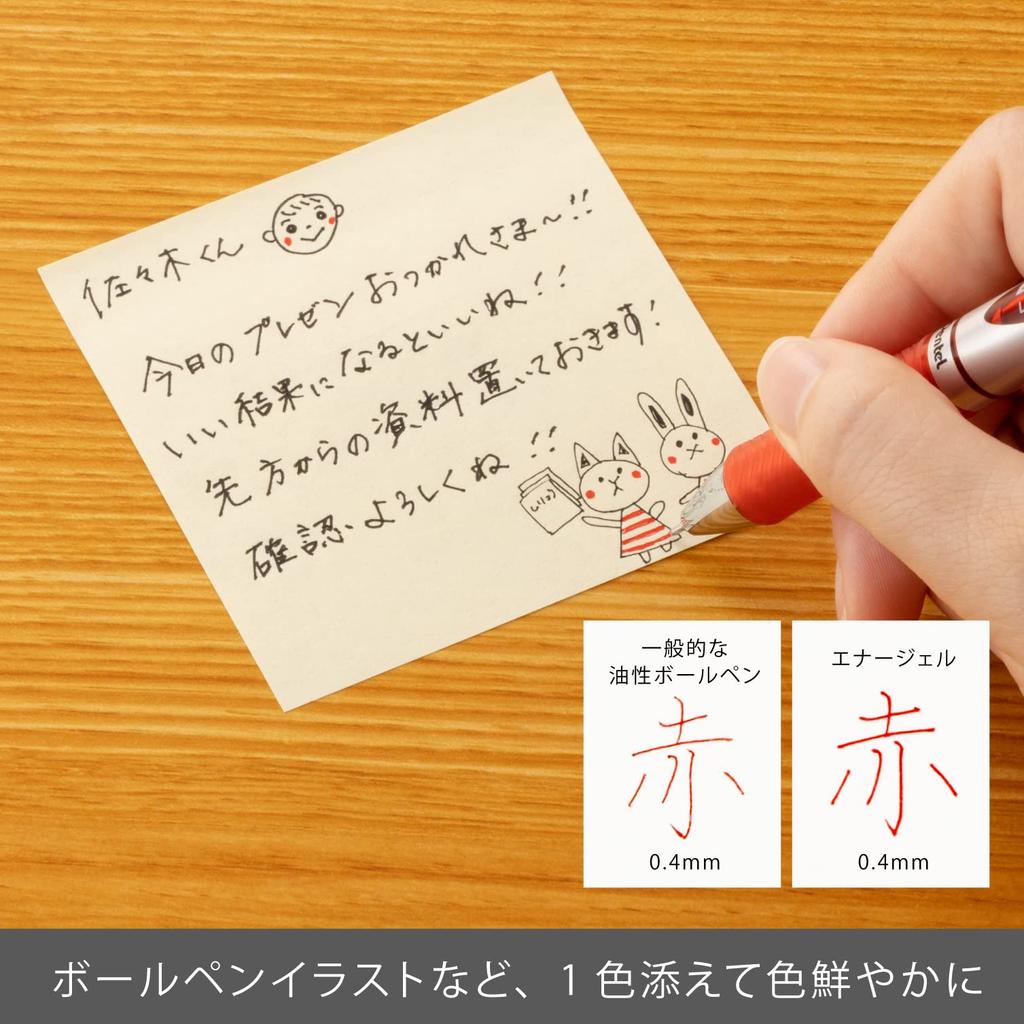 佐々木くん
今日のプレゼンおつかれさま〜!!
いい結果になるといいね!!
先方からの資料置いておきます!
確認よろしくね!!
しりょう
entel
一般的な
油性ボールペン
赤
0.4mm
エナージェル
赤
0.4mm
ボールペンイラストなど、1色添えて色鮮やかに